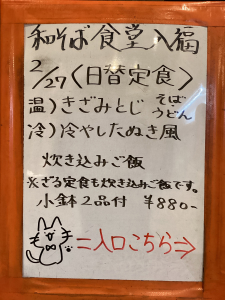 和そば食堂入福
2/27〈日替定食〉
温)きざみとじ そば うどん
冷)冷やしたぬき風
炊き込みご飯
※ざる定食も炊き込みご飯です。
小鉢2品付 ¥880-
=入口こちら⇒